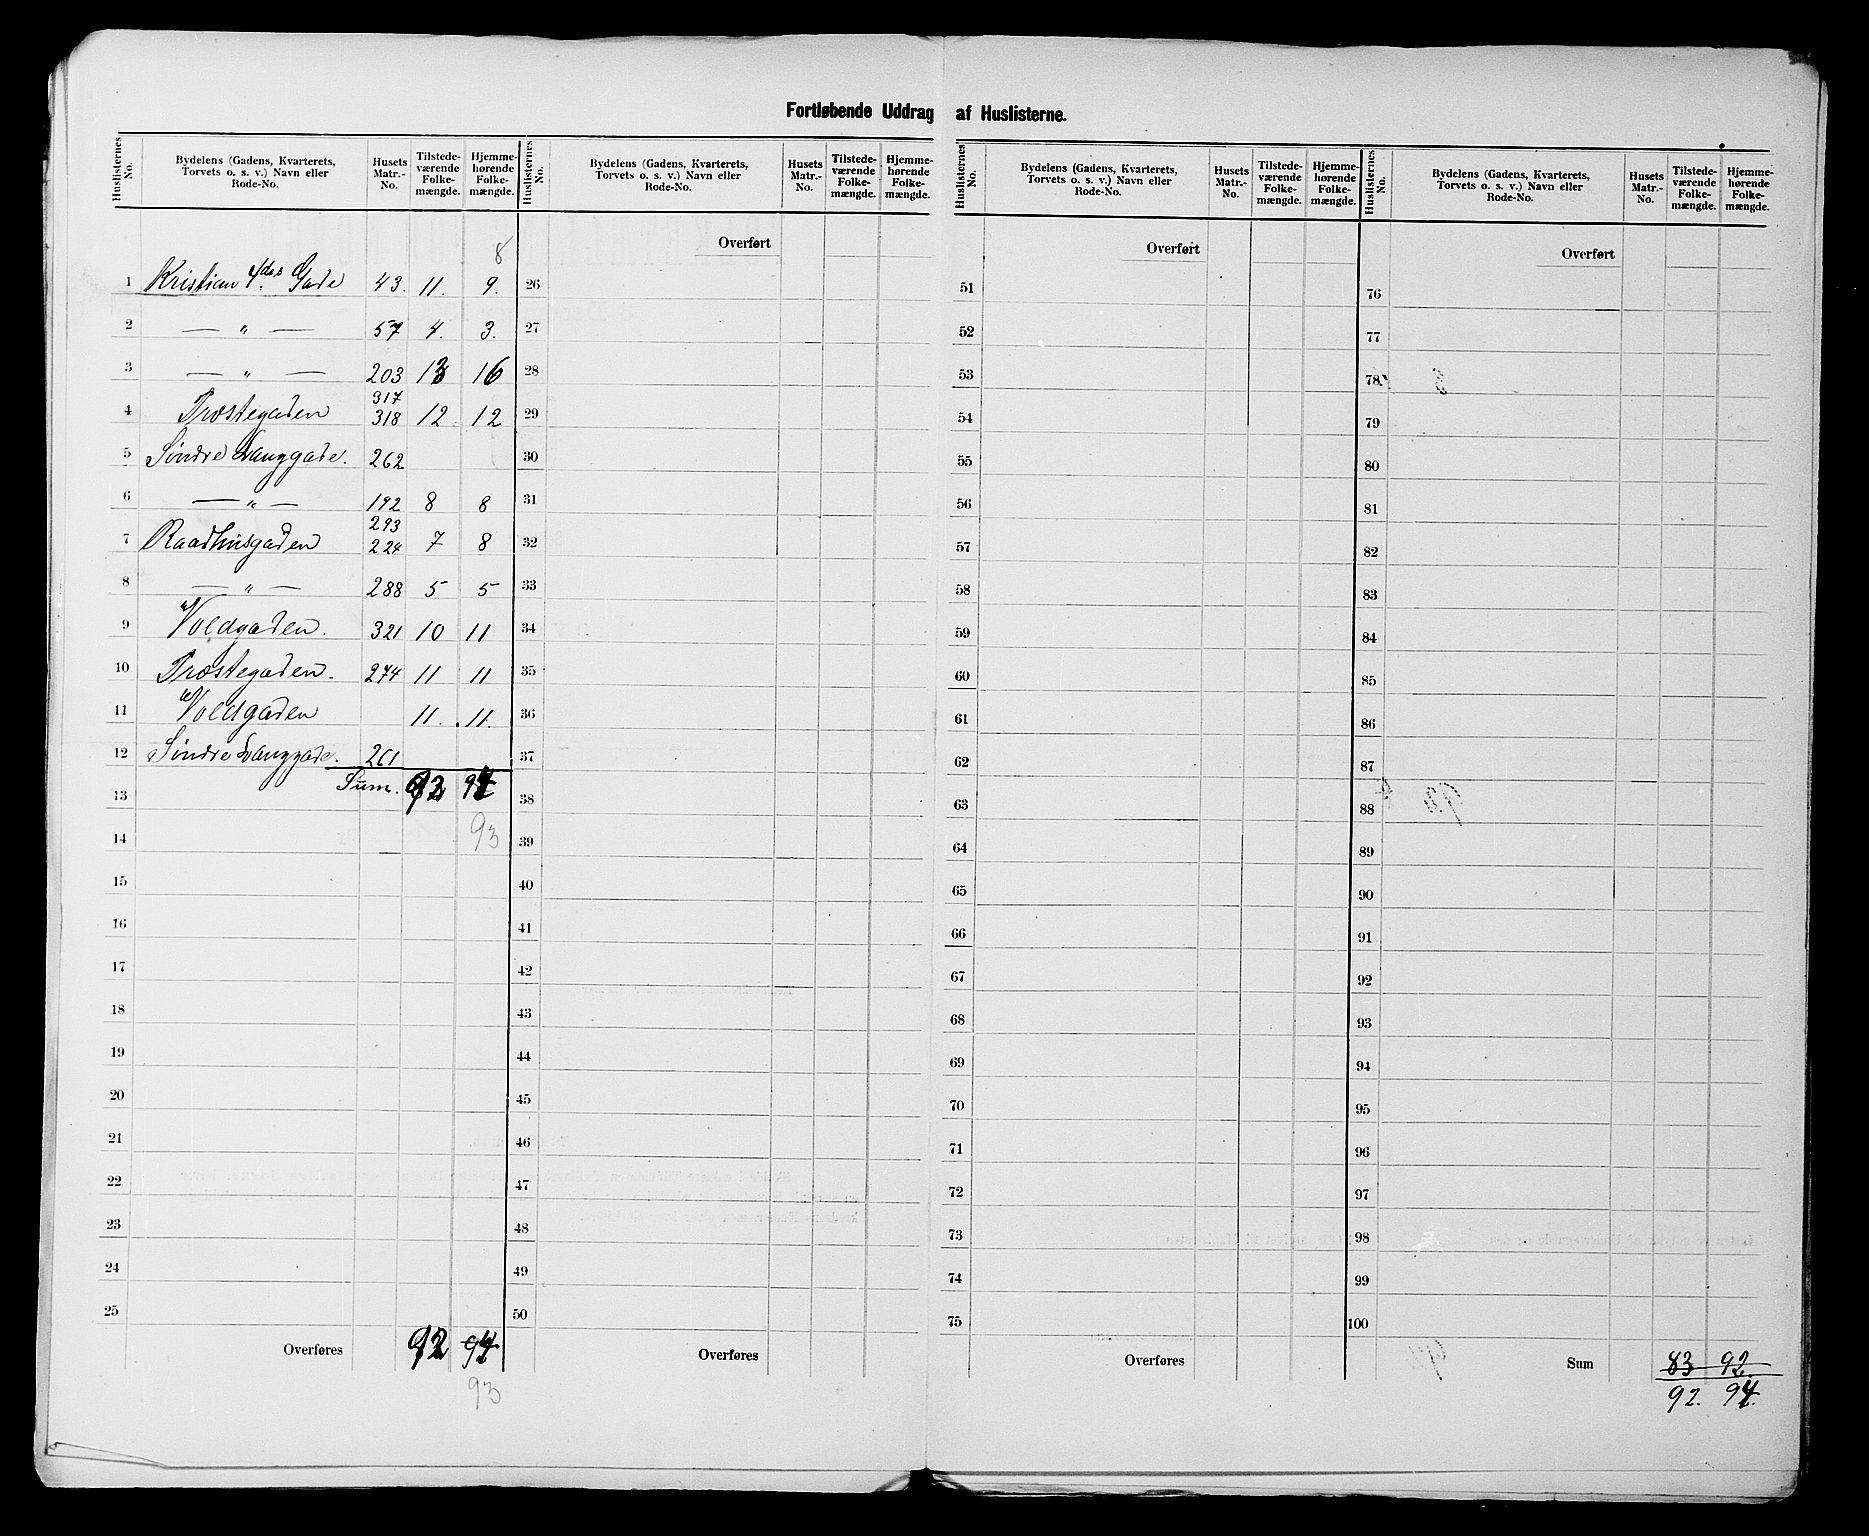 Fortløbende Uddrag af Huslisterne.
Huslisternes No. | Bydelens (Gadens, Kvarterets, Torvets o. s. v.) Navn eller Rode-No. | Husets Matr.-No. | Tilstedeværende Folkemængde. | Hjemmehørende Folkemængde.
8
1 Kristian 4des Gade 43. 11. 9.
2 — " — 57 4. 3.
3 — " — 203 13 16
317
4 Præstegaden 318 12 12
5 Søndre Langgade. 262
6 — " — 192 8 8
293
7 Raadhusgaden 224 7 8
8 — " — 288 5 5
9 Voldgaden. 321 10 11
10 Præstegaden. 274 11 11
11 Voldgaden 11. 11.
12 Søndre Langgade. 261
Sum. 92 94
13
93
14
15
16
17
18
19
20
21
22
23
24
25
Overføres 92 94
93
Huslisternes No. | Bydelens (Gadens, Kvarterets, Torvets o. s. v.) Navn eller Rode-No. | Husets Matr.-No. | Tilstedeværende Folkemængde. | Hjemmehørende Folkemængde.
Overført
26
27
28
29
30
31
32
33
34
35
36
37
38
39
40
41
42
43
44
45
46
47
48
49
50
Overføres
Huslisternes No. | Bydelens (Gadens, Kvarterets, Torvets o. s. v.) Navn eller Rode-No. | Husets Matr.-No. | Tilstedeværende Folkemængde. | Hjemmehørende Folkemængde.
Overført
51
52
53
54
55
56
57
58
59
60
61
62
63
64
65
66
67
68
69
70
71
72
73
74
75
Overføres
Huslisternes No. | Bydelens (Gadens, Kvarterets, Torvets o. s. v.) Navn eller Rode-No. | Husets Matr.-No. | Tilstedeværende Folkemængde. | Hjemmehørende Folkemængde.
Overført
76
77
78
79
80
81
82
83
84
85
86
87
88
89
90
91
92
93
94
95
96
97
98
99
100
Sum 83 92.
92. 94.